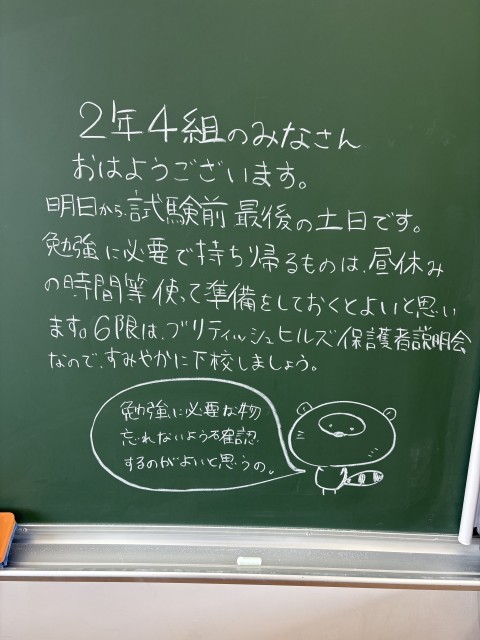 2年4組のみなさん
おはようございます。
明日から試験前最後の土日です。
勉強に必要で持ち帰るものは、昼休み
の時間等使って準備をしておくとよいと思い
ます。6限は、ブリティッシュヒルズ保護者説明会
なので、すみやかに下校しましょう。
勉強に必要な物
忘れないよう確認
するのがよいと思うの。